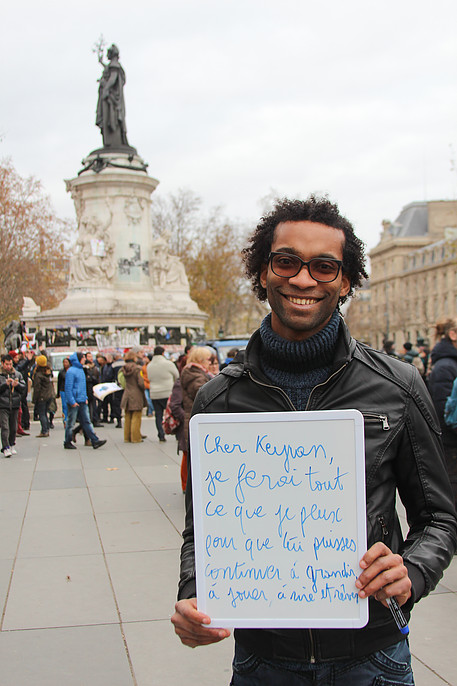 Cher Keyran,
je ferai tout
ce que je peux
pour que tu puisses
continuer à grandir
à jouer, à rire et rêver